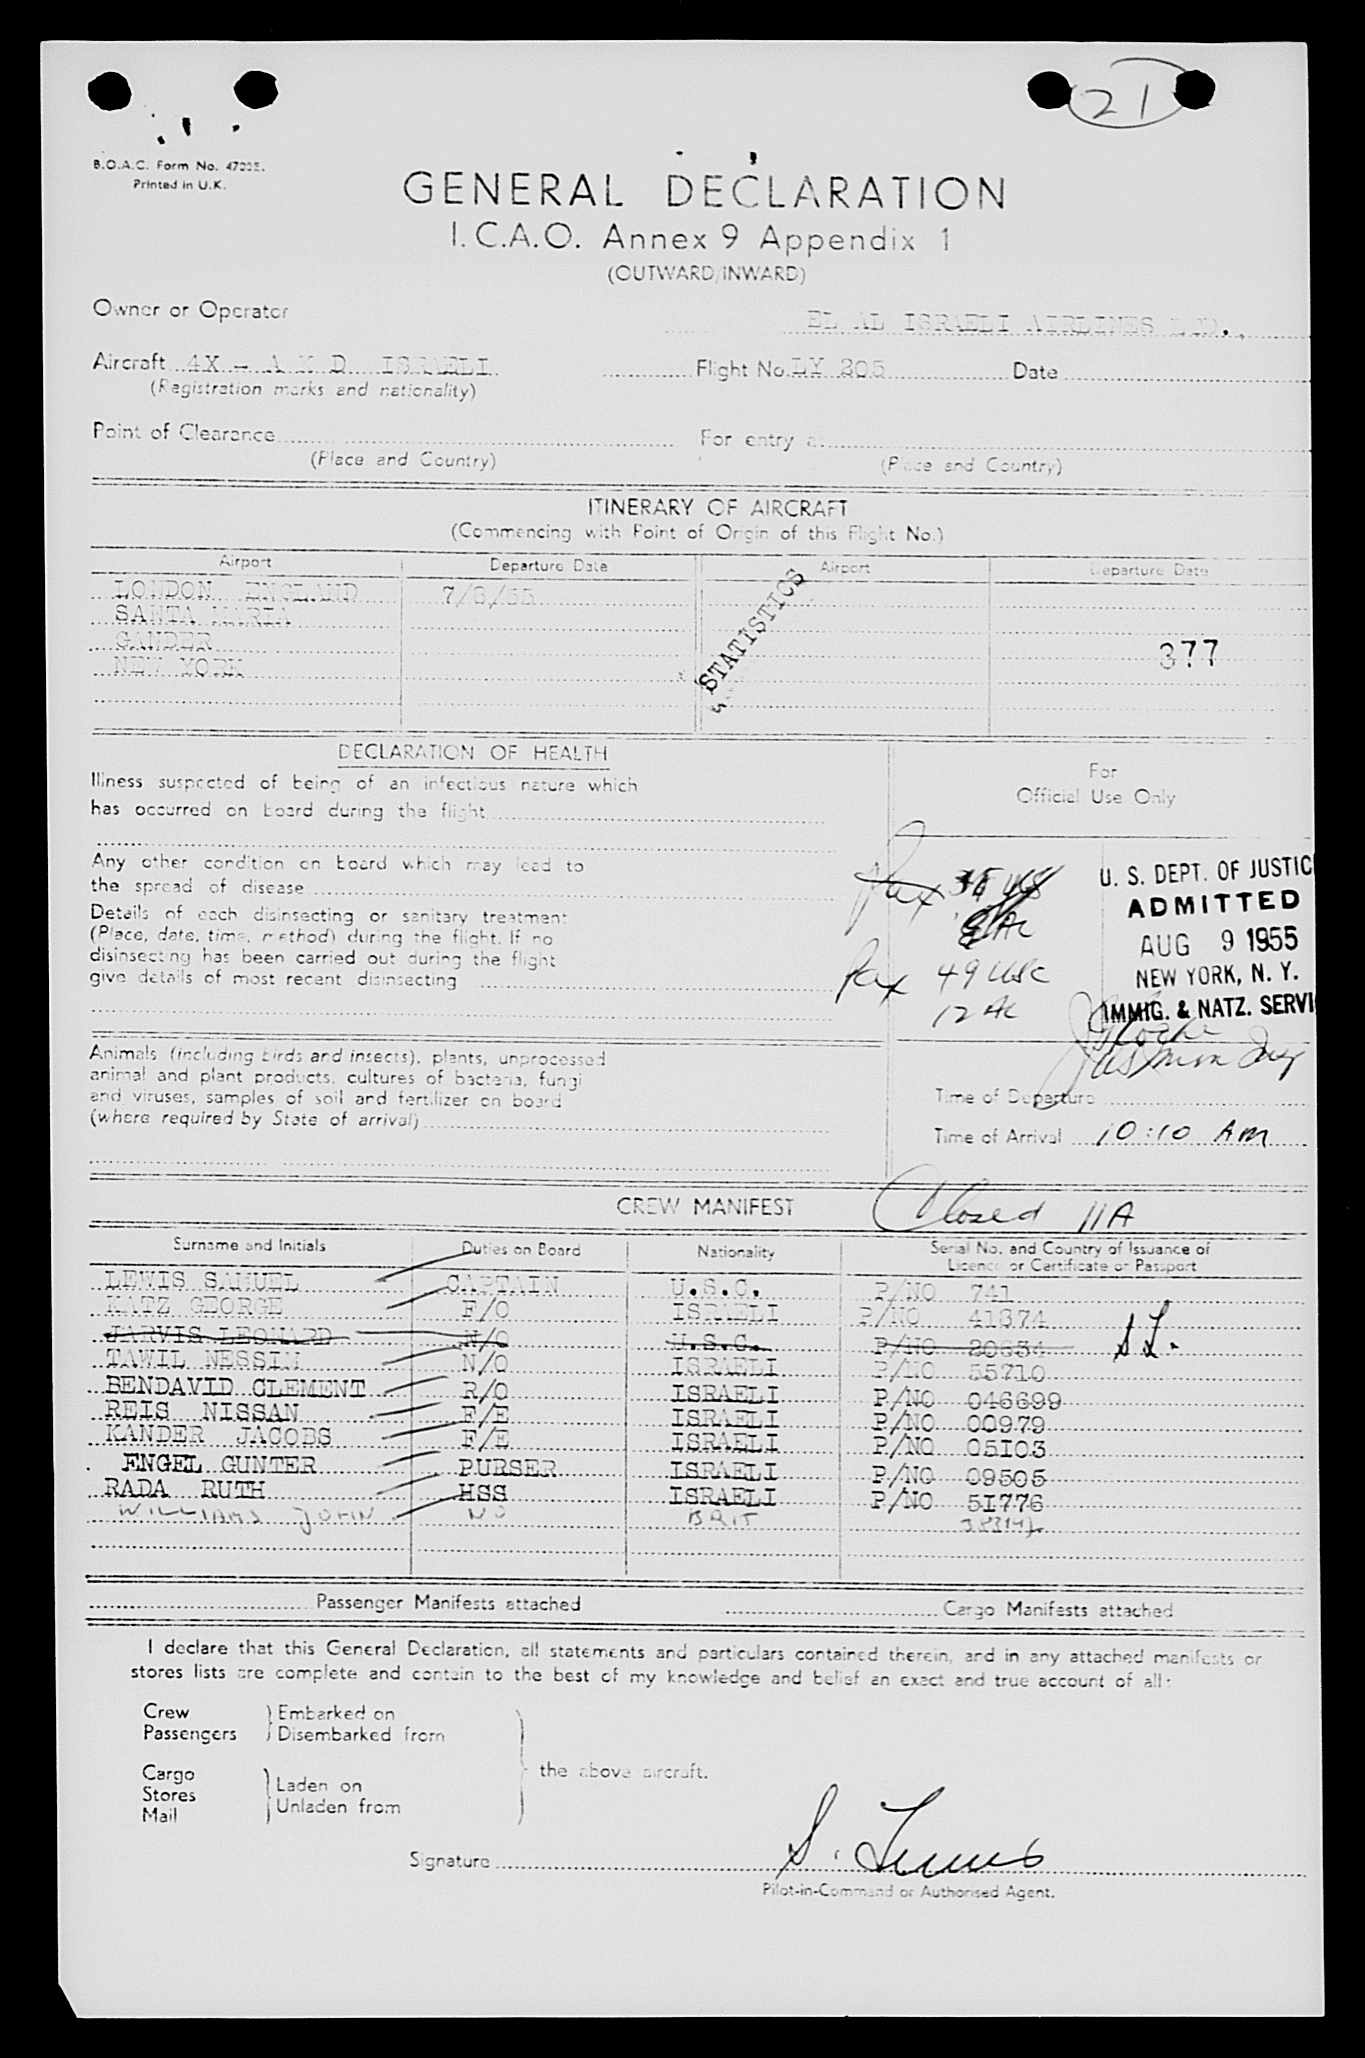 21
B.O.A.C. Form No.
Printed in U.K.
GENERAL DECLARATION
I.C.A.O. Annex 9 Appendix 1
(OUTWARD/INWARD)
Owner or Operator EL AL ISRAELI AIRLINES LTD.,
Aircraft 4X - A K D ISRAELI Flight No. LY 205 Date
(Registration marks and nationality)
Point of Clearance For entry at
(Place and Country) (Place and Country)
ITINERARY OF AIRCRAFT
(Commencing with Point of Origin of this Flight No.)
Airport Departure Date Airport Departure Date
LONDON ENGLAND 7/8/55
SANTA MARIA
GANDER
NEW YORK
STATISTICS
377
DECLARATION OF HEALTH
Illness suspected of being of an infectious nature which
has occurred on board during the flight
Any other condition on board which may lead to
the spread of disease
Details of each disinsecting or sanitary treatment
(Place, date, time, method) during the flight. If no
disinsecting has been carried out during the flight
give details of most recent disinsecting
For
Official Use Only
Pax
Pax 49 USC
12 AL
U. S. DEPT. OF JUSTIC
ADMITTED
AUG 9 1955
NEW YORK, N. Y.
IMMIG. & NATZ. SERVI
Animals (including birds and insects), plants, unprocessed
animal and plant products, cultures of bacteria, fungi
and viruses, samples of soil and fertilizer on board
(where required by State of arrival)
Time of Departure
Time of Arrival 10:10 AM
CREW MANIFEST Closed 11A
Surname and Initials Duties on Board Nationality Serial No. and Country of Issuance of
Licence or Certificate or Passport
LEWIS SAMUEL CAPTAIN U.S.C. P/NO 741
KATZ GEORGE F/O ISRAELI P/NO 41374
JARVIS LEONARD N/O U.S.C. P/NO 20634 S L.
TAWIL NESSIM N/O ISRAELI P/NO 55710
BENDAVID CLEMENT R/O ISRAELI P/NO 046699
REIS NISSAN F/E ISRAELI P/NO 00979
KANDER JACOBS F/E ISRAELI P/NO 05I03
ENGEL GUNTER PURSER ISRAELI P/NO 09505
RADA RUTH HSS ISRAELI P/NO 5I776
WILLIAMS JOHN NO BRIT
Passenger Manifests attached Cargo Manifests attached
I declare that this General Declaration, all statements and particulars contained therein, and in any attached manifests or
stores lists are complete and contain to the best of my knowledge and belief an exact and true account of all:
Crew Embarked on
Passengers Disembarked from
the above aircraft.
Cargo Laden on
Stores Unladen from
Mail
Signature S. Lewis
Pilot-in-Command or Authorised Agent.